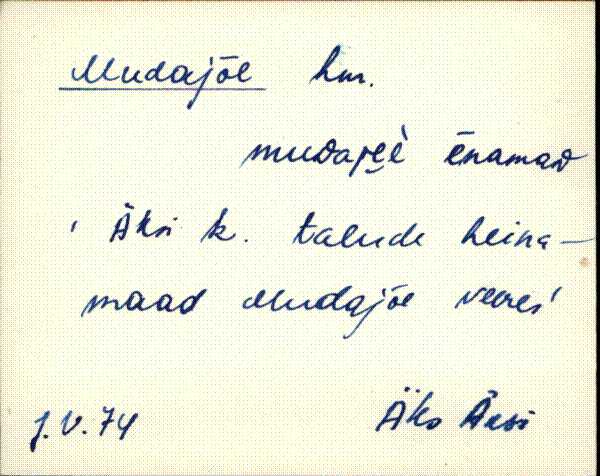 Mudajõe hm.
mudajẹè ēnamad
' Äksi k. talude heina-
maad Mudajõe veeres'
J.V.74 Äks Äksi